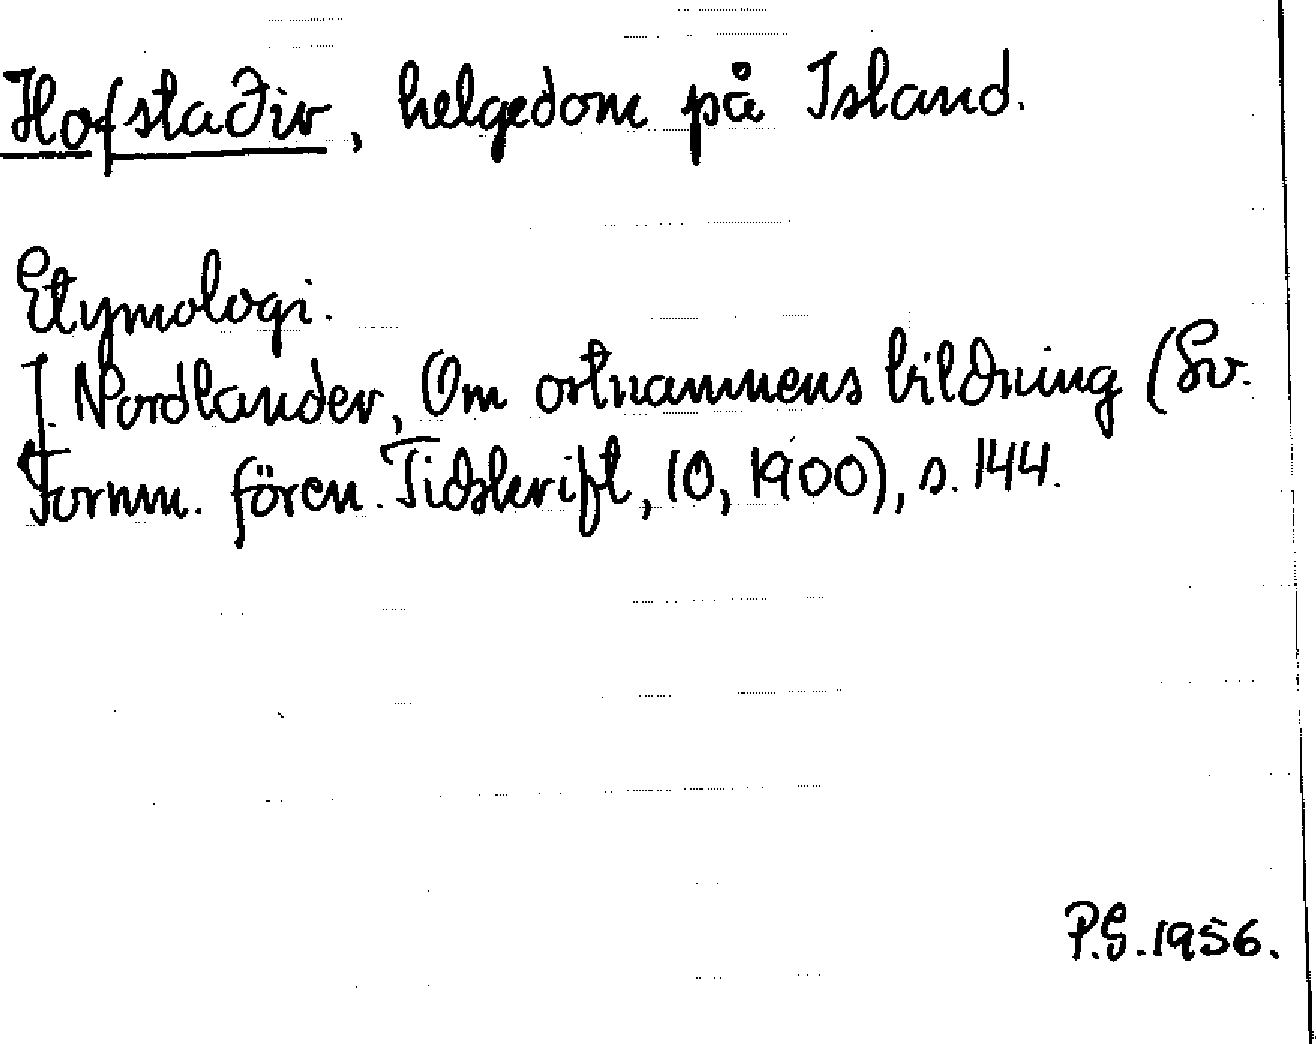 Hofstaðir, helgedom på Island.
Etymologi.
J. Nordlander, Om ortnamnens bildning (Sv.
Fornm. fören. Tidskrift, 10, 1900), s. 144.
P.G. 1956.